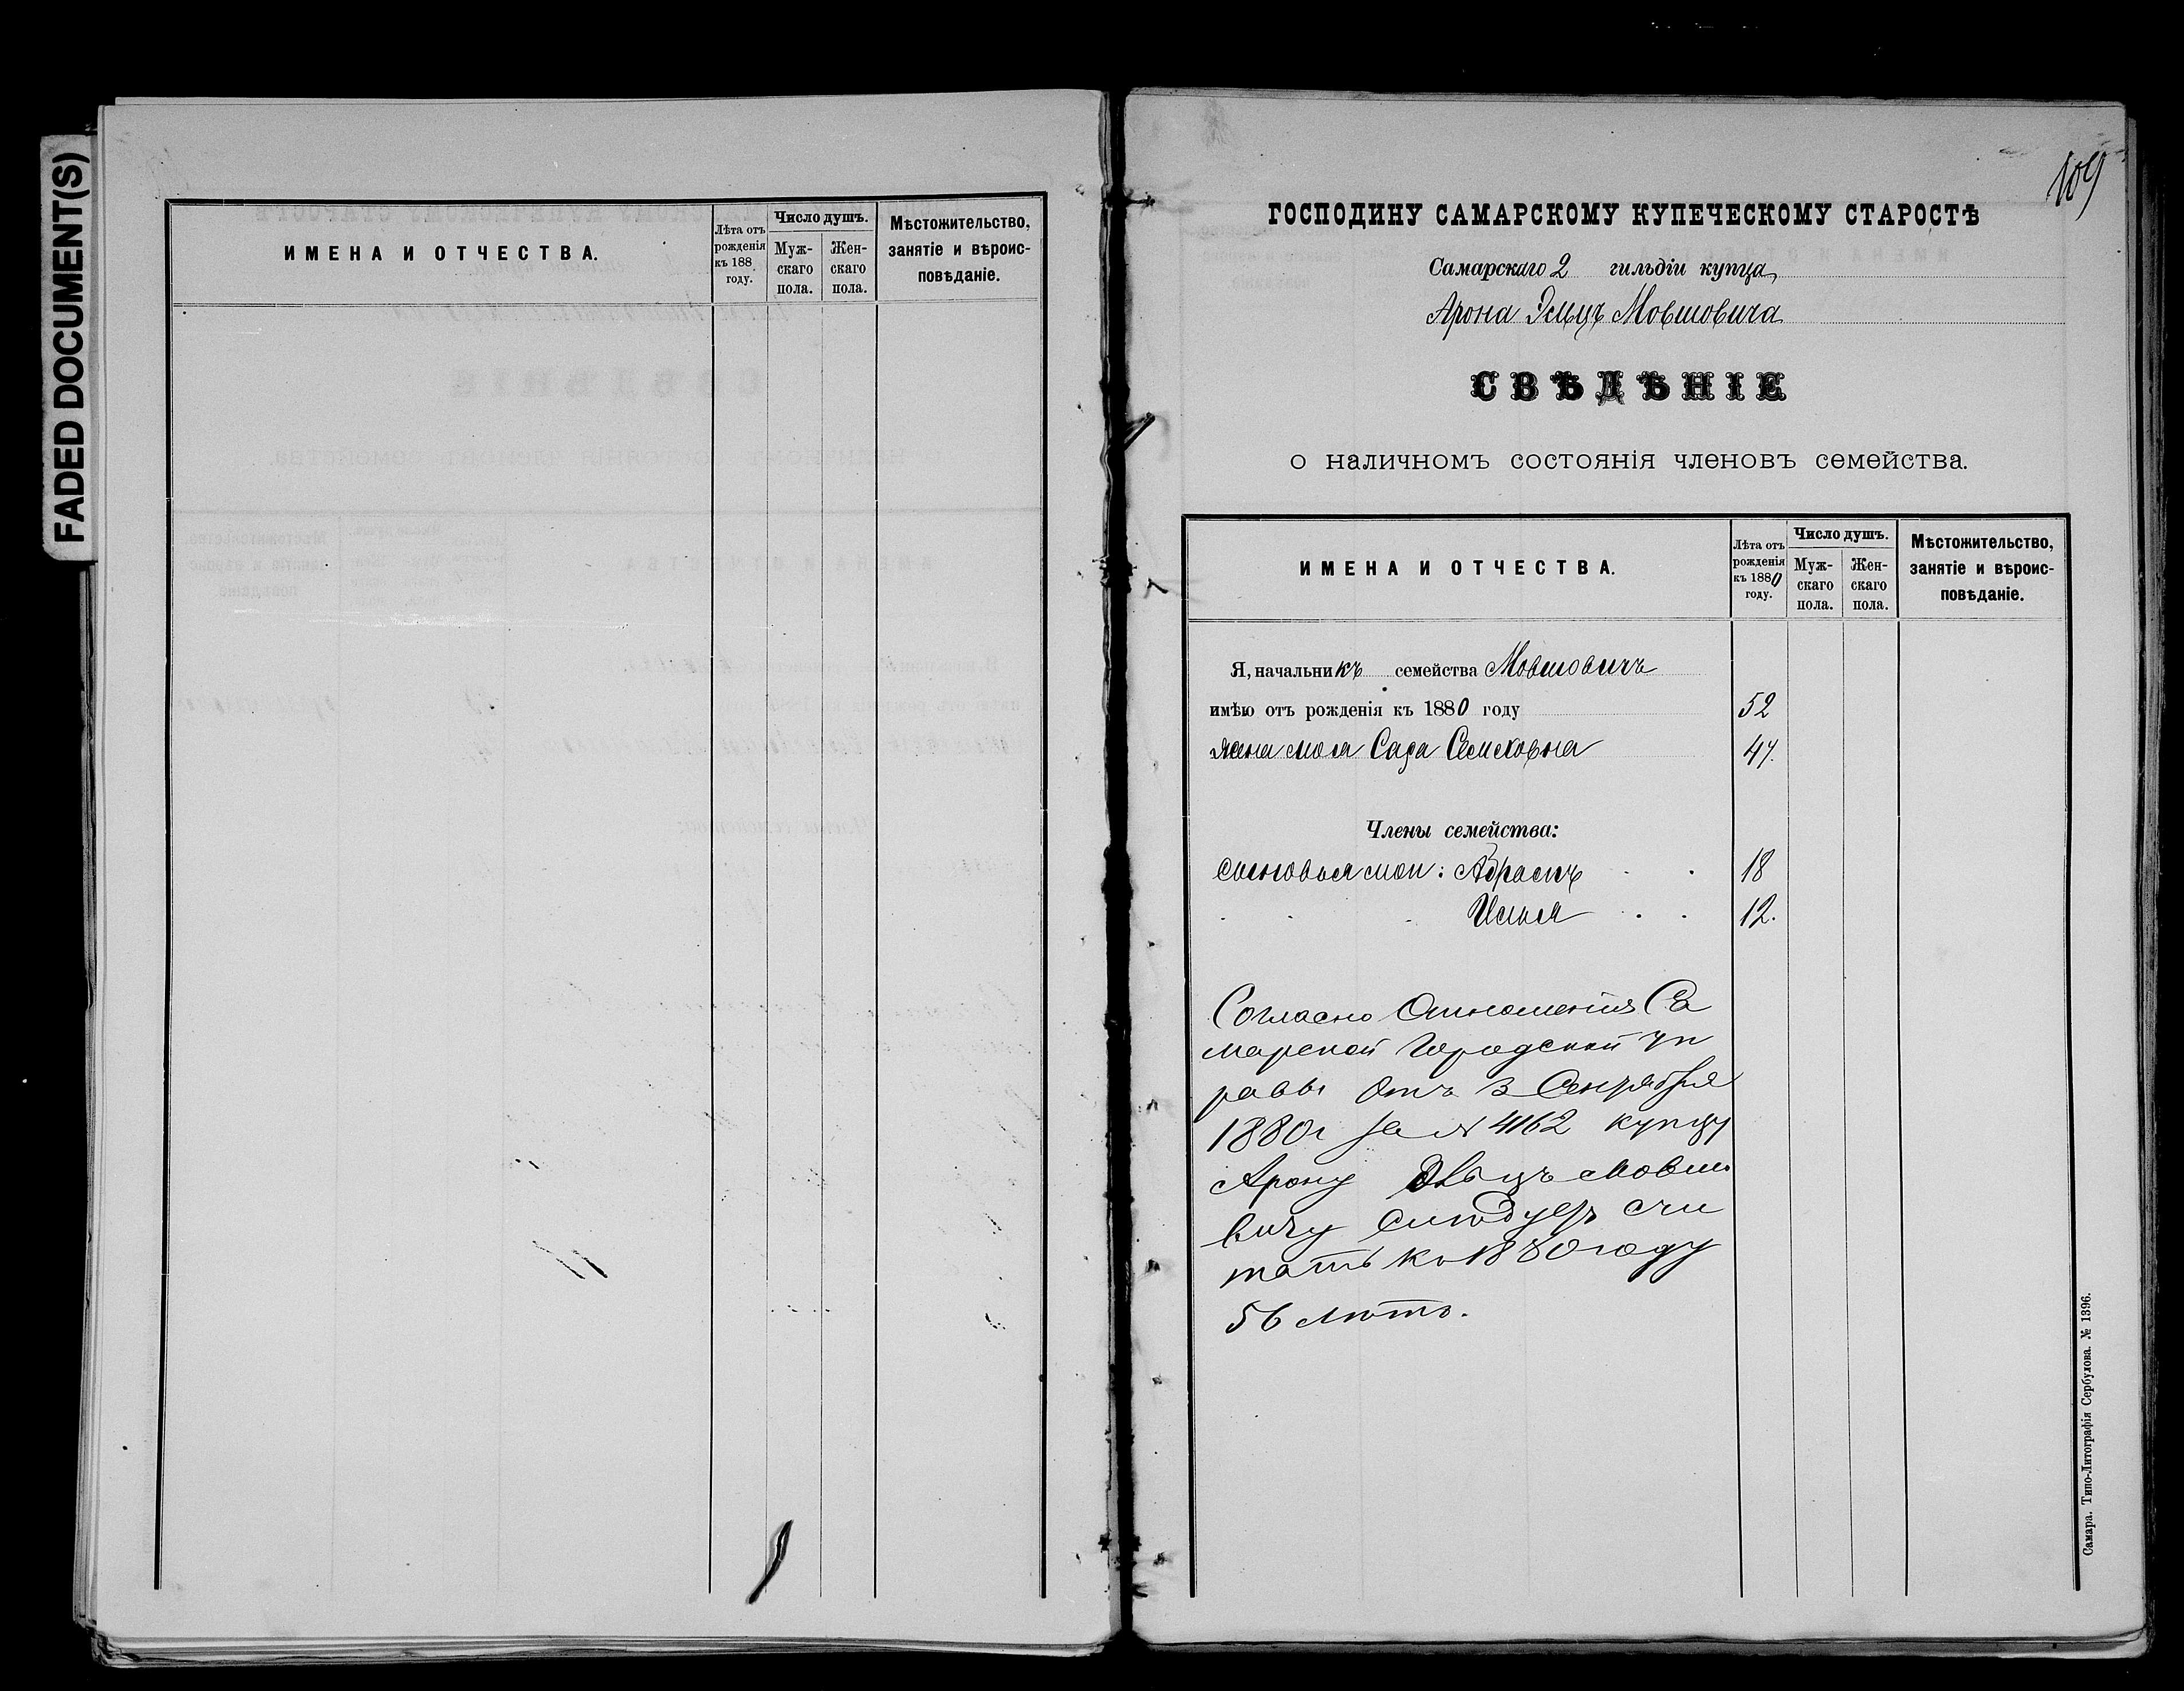 FADED DOCUMENT(S)
ИМЕНА И ОТЧЕСТВА.
Лѣта отъ рожденія къ 188 году.
Число душъ.
Мужскаго пола.
Женскаго пола.
Мѣстожительство, занятіе и вѣроисповѣданіе.
109
ГОСПОДИНУ САМАРСКОМУ КУПЕЧЕСКОМУ СТАРОСТѢ
Самарскаго 2 гильдіи купца
Арона Эльцъ Мовшовича
СВѢДѢНІЕ
о наличномъ состоянія членовъ семейства.
ИМЕНА И ОТЧЕСТВА.
Лѣта отъ рожденія къ 1880 году.
Число душъ.
Муж-скаго пола.
Жен-скаго пола.
Мѣстожительство, занятіе и вѣроис-повѣданіе.
Я, начальникъ семейства Мовшовичъ
имѣю отъ рожденія къ 1880 году 52
жена моя Сара 47.
Члены семейства:
сыновья мои: Абрамъ 18
Илья 12.
Согласно Отношенія Са
марской Городской Уп
равы отъ 3 Сентября
1880г за № 4162 купцу
Арону Эльцъ Мовшо
вичу слѣдуетъ счи
тать къ 1880 году
56 лѣтъ.
Самара. Типо-Литографія Сербулова. № 1396.